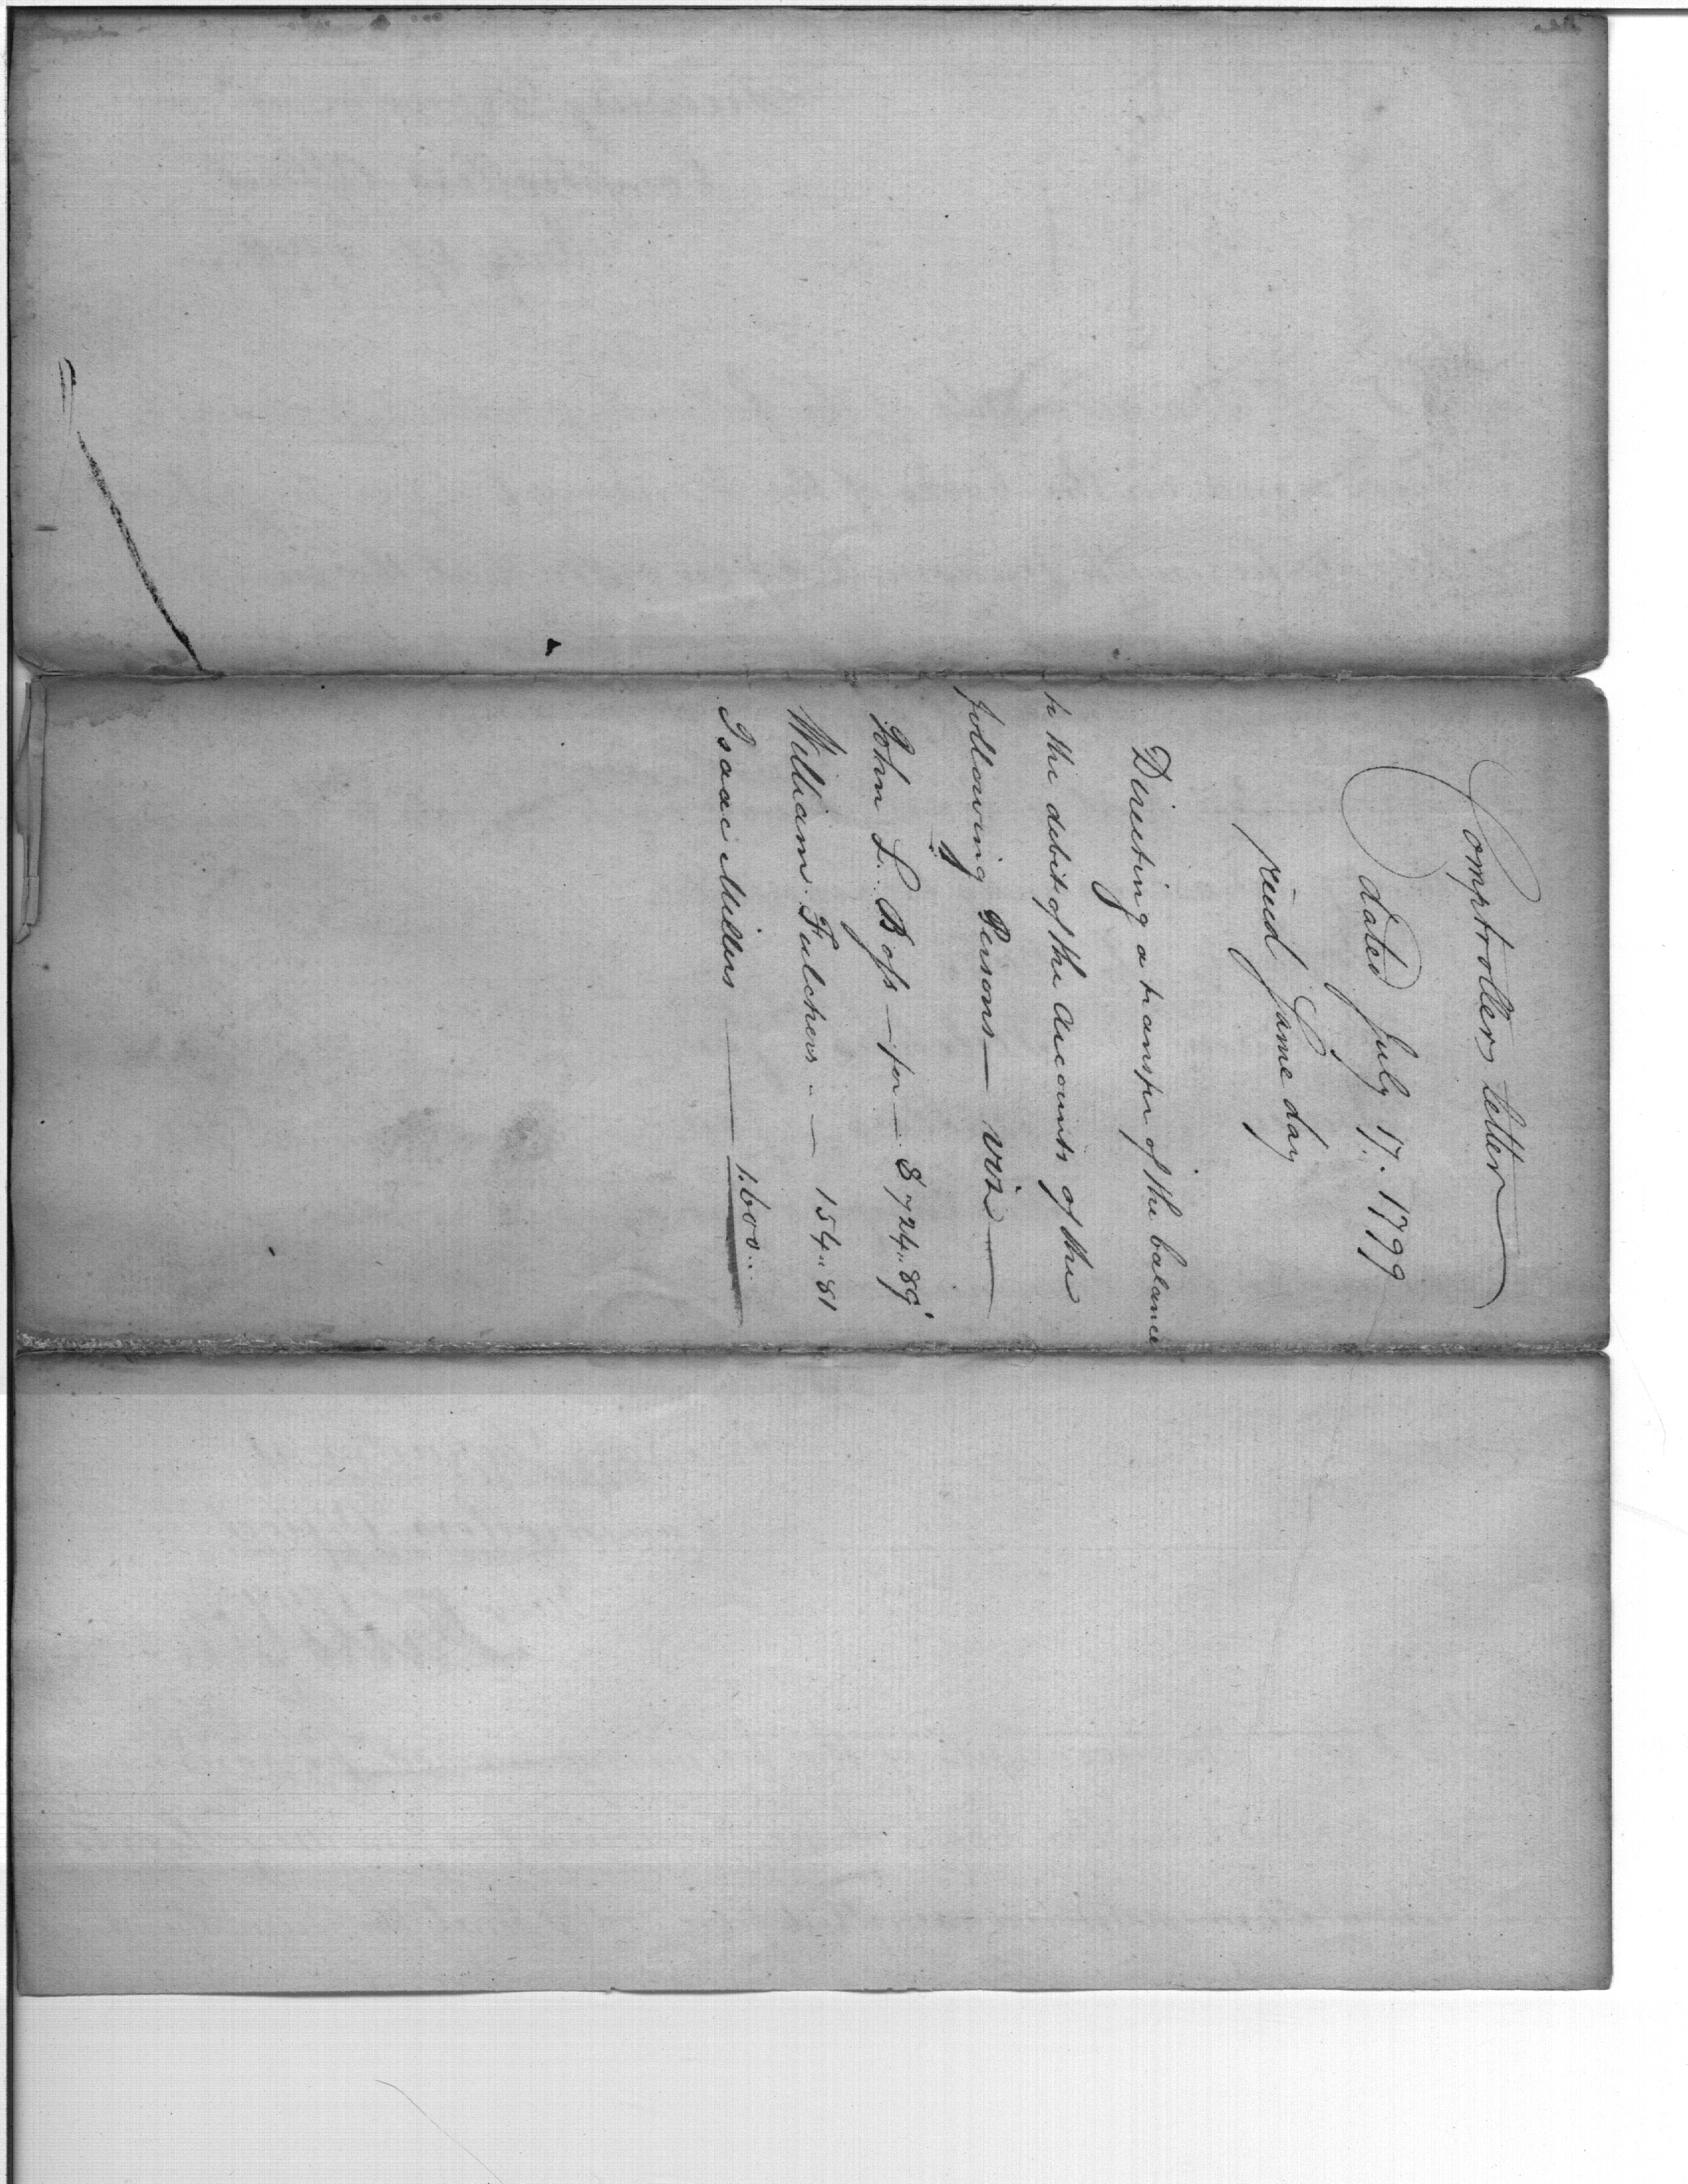 Comptrollers letter
dated July 17. 1799
recd same day
Directing a transfer of the balance
to the debit of the Accounts of the
following Persons — viz —
John L. Boss — for — $724.. 89
William Fulchers .. — 154.. 81
Isaac Millers — 1.600 ..